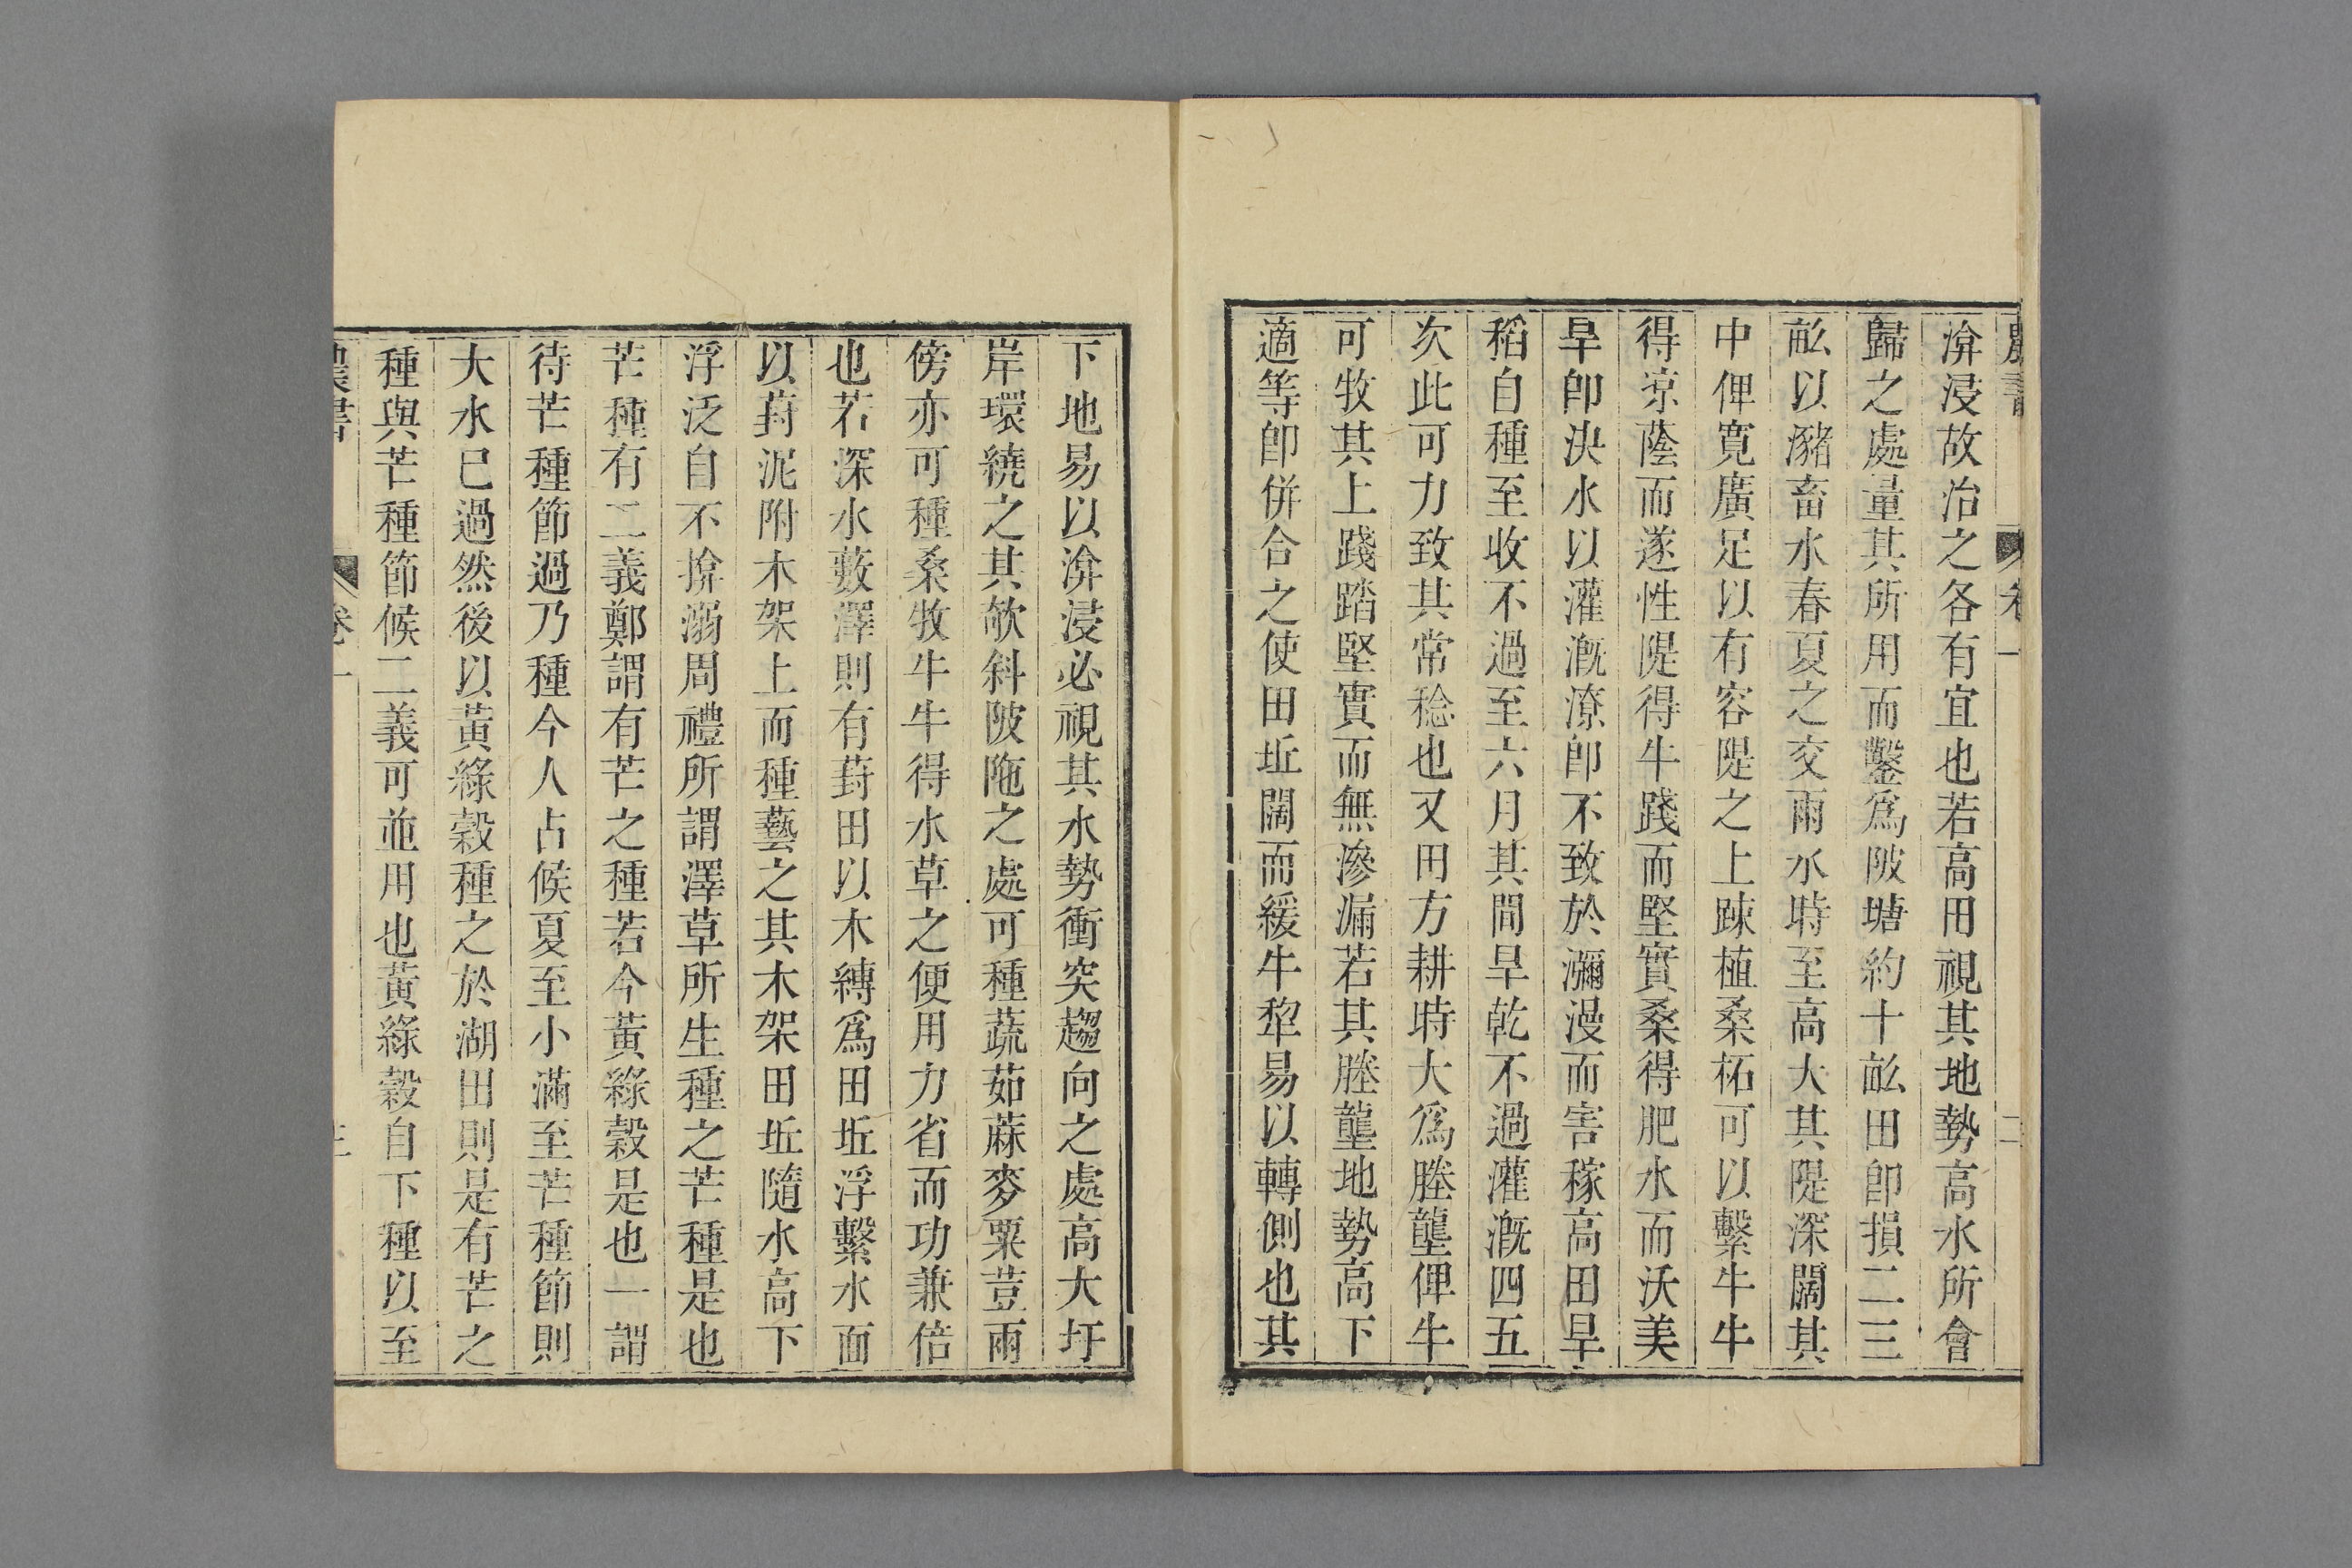 農書 卷一 二
渰浸故治之各有宜也若高田視其地勢高水所會
歸之處量其所用而鑿爲陂塘約十畝田卽損二三
畝以瀦畜水春夏之交雨水時至高大其隄深闊其
中俾寬廣足以有容隄之上疎植桑柘可以繫牛牛
得凉蔭而遂性隄得牛踐而堅實桑得肥水而沃美
旱卽決水以灌漑潦卽不致於瀰漫而害稼高田旱
稻自種至收不過五六月其間旱乾不過灌漑四五
次此可力致其常稔也又田方耕時大爲塍壟俾牛
可牧其上踐踏堅實而無滲漏若其塍壟地勢高下
適等卽併合之使田坵闊而緩牛犂易以轉側也其
下地易以渰浸必視其水勢衝突趨向之處高大圩
岸環繞之其欹斜陂陁之處可種蔬茹蔴麥粟荳兩
傍亦可種桑牧牛牛得水草之便用力省而功兼倍
也若深水藪澤則有葑田以木縛爲田坵浮繫水面
以葑泥附木架上而種藝之其木架田坵隨水高下
浮泛自不揜溺周禮所謂澤草所生種之芒種是也
芒種有二義鄭謂有芒之種若今黃綠穀是也一謂
待芒種節過乃種今人占候夏至小滿至芒種節則
大水已過然後以黃綠穀種之於湖田則是有芒之
種與芒種節候二義可並用也黃綠穀自下種以至
農書 卷一